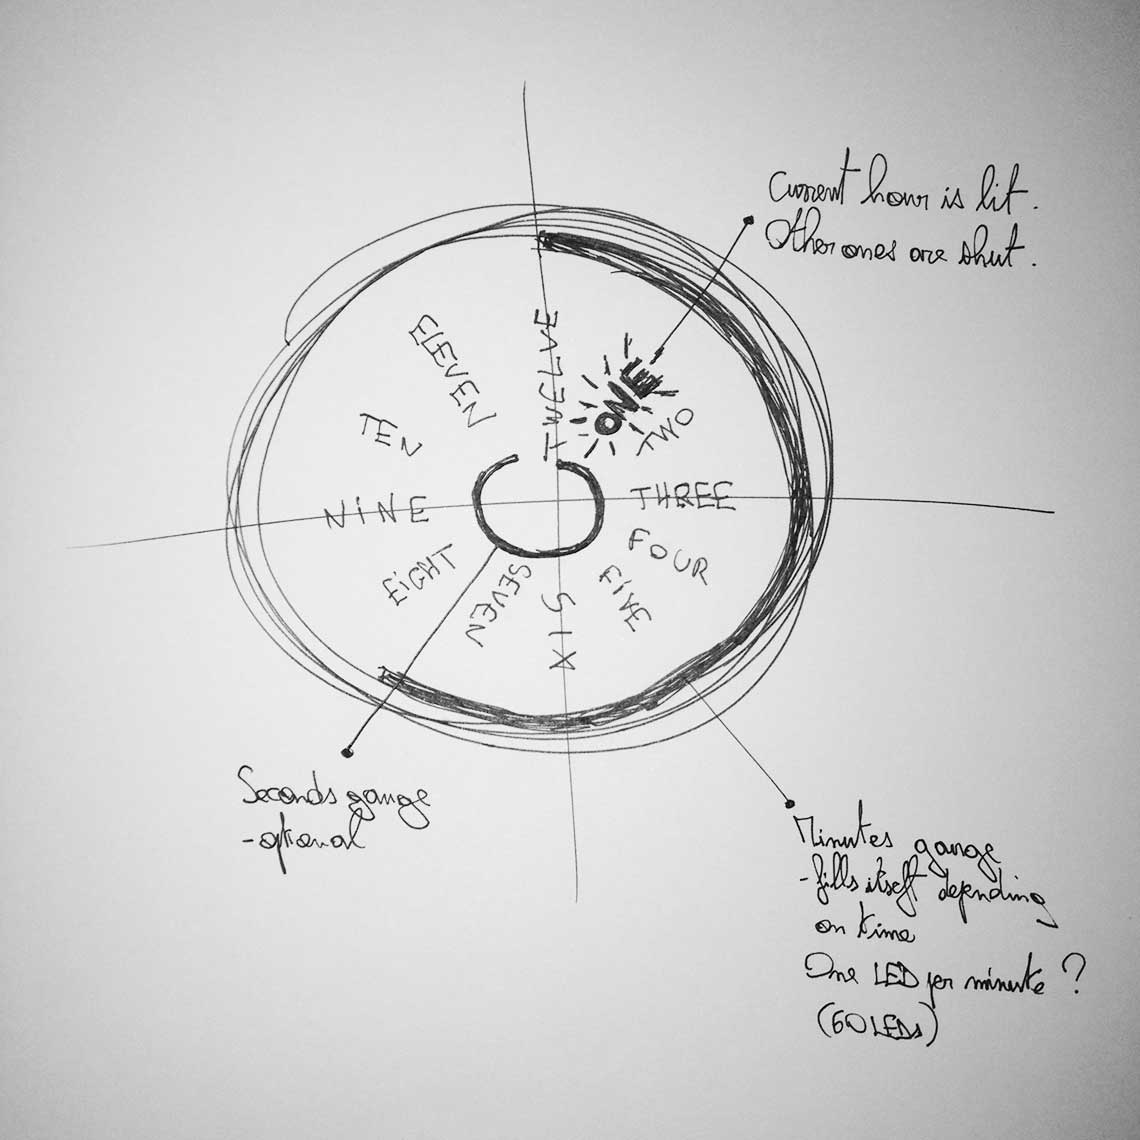 Current hour is lit.
Other ones are shut.
TWELVE
ONE
TWO
THREE
FOUR
FIVE
SIX
SEVEN
EIGHT
NINE
TEN
ELEVEN
Seconds gauge
- optional
Minutes gauge
- fills itself depending
on time
One LED per minute ?
(60 LEDs)